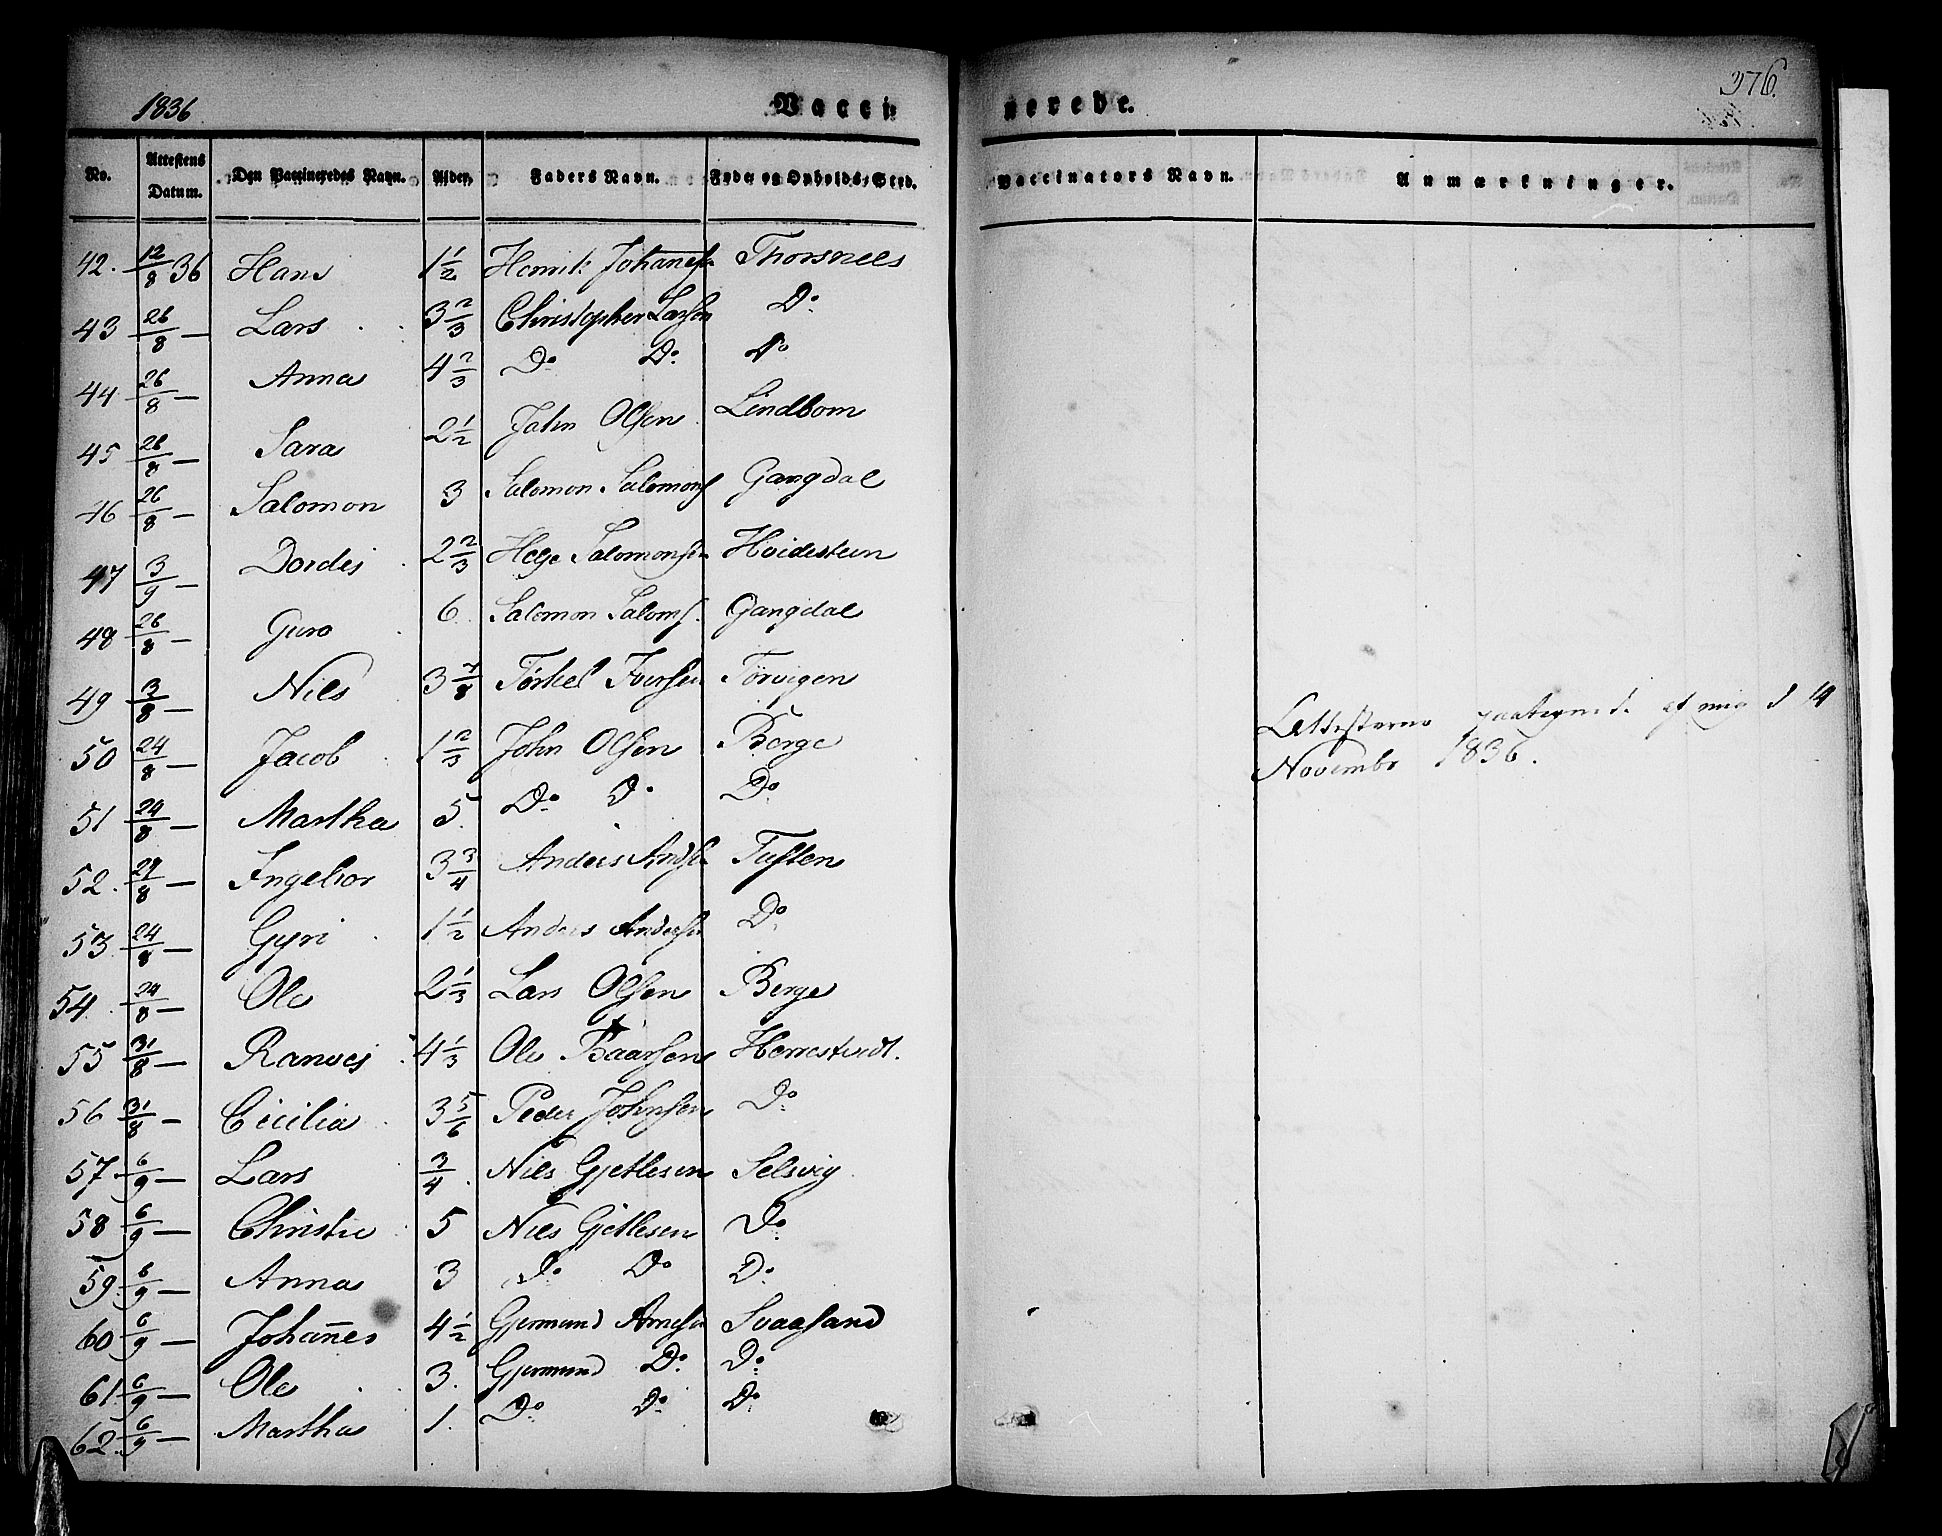 1836 Vacci-
nerede. 376.
No. Attestens Datum. Den Vaccineredes Navn. Alder. Faders Navn. Føde og Opholds-Sted. Vaccinators Navn. Anmærkninger.
42. 12/8 36 Hans 1 1/2 Henrik Johanes Thorsnees
43 26/8 — Lars 3 2/3 Christopher Larsen Do
44 26/8 — Anna 4 2/3 Do Do Do
45 26/8 — Sara 2 1/2 John Olsen Lindbom
46 26/8 — Salomon 3 Salomon Salomons Gangdal
47 3/9 — Dordei 2 2/3 Helge Salomonsen Hvidesteen
48 26/8 — Guro 6 Salomon Saloms. Gangdal
49 3/8 — Niels 3 7/8 Törkel Iversen Törvigen
50 24/8 — Jacob 1 2/3 John Olsen Berge
51 24/8 — Martha 5. Do Do Do
52. 24/8 — Ingebor 3 3/4 Anders Andsen Tuften
53. 24/8 — Gyri 1 1/2 Anders Andersen Do
54. 24/8 — Ole 2 1/3 Lars Olsen Berge
55 31/8 — Ranvei 4 1/3 Ole Baarsen Herrestvedt.
56 31/8 — Cicilia 3 5/6 Peder Johnsen Do
57 6/9 — Lars 3/4. Niels Gjetlesen Selsvig
58 6/9 — Christie 5 Niels Gjetlesen Do
59. 6/9 — Anna 3 Do Do Do
60 6/9 — Johannes 4 1/2 Gjermund Arnesen Svaasand
61. 6/9 — Ole 3. Gjermund Do Do
62. 6/9 — Martha 1. Do Do Do
Attesterne paategnede af mig d 19
Novembr 1836.